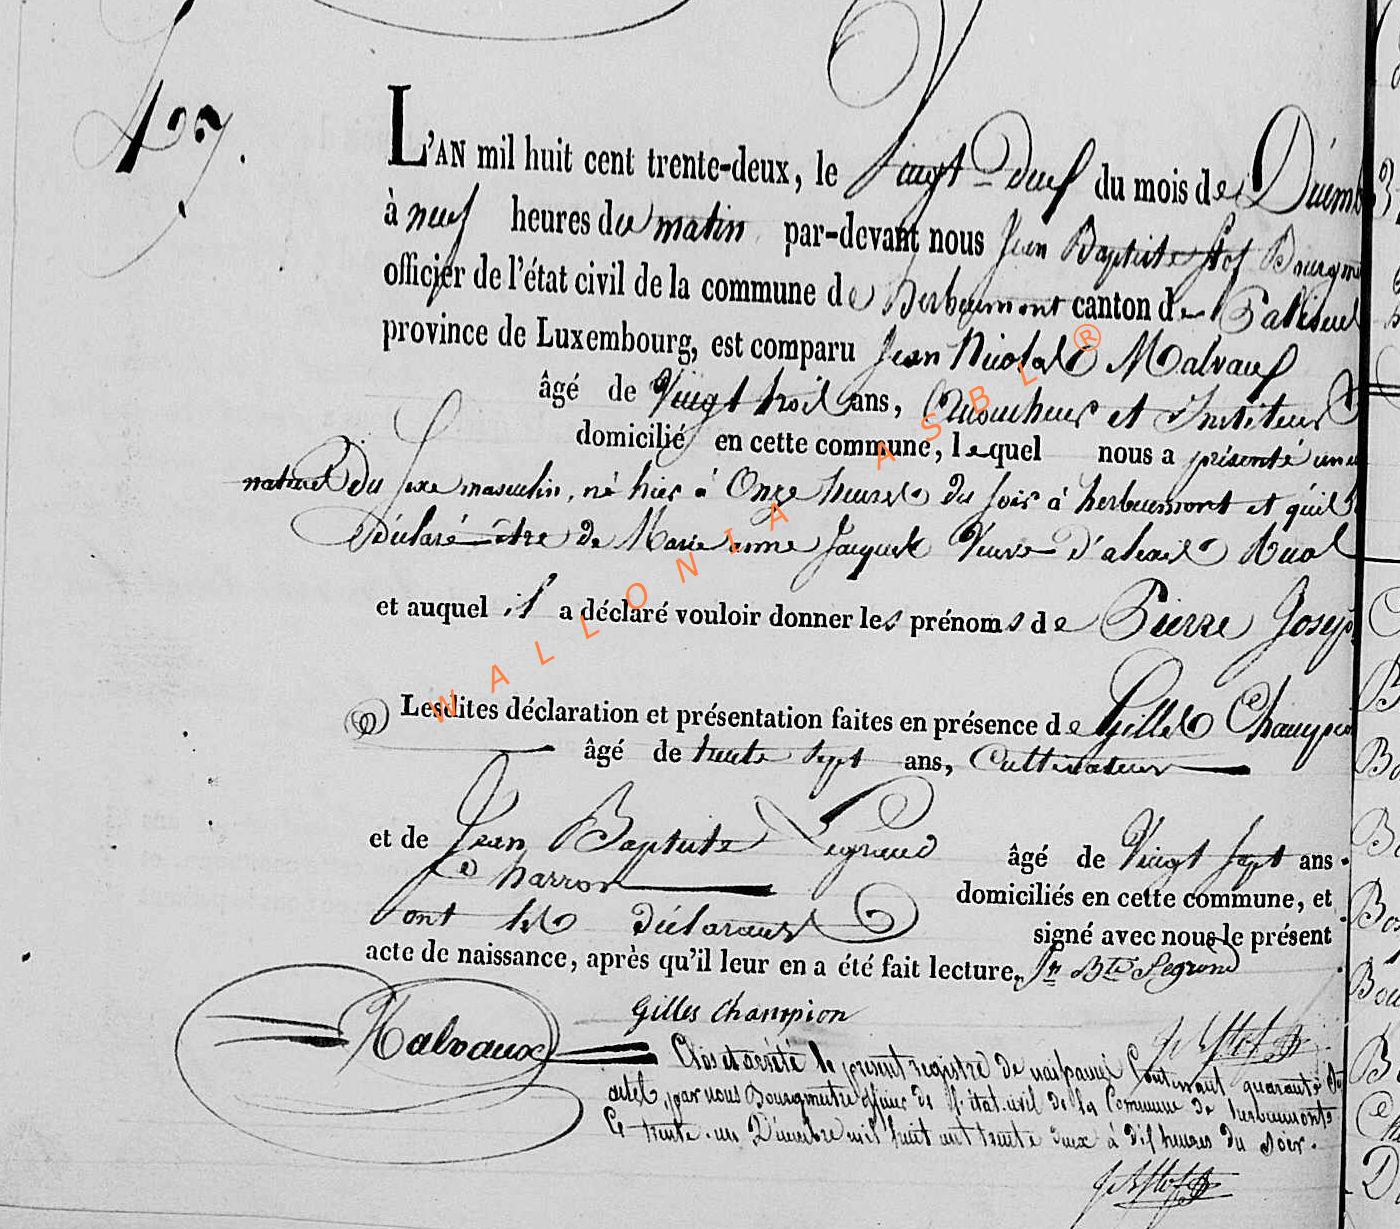 47.
L'AN mil huit cent trente-deux, le Vingt-deux du mois de Décemb
à neuf heures du matin par-devant nous Jean Baptiste Stof Bourgme
officier de l'état civil de la commune de Herbeumont canton de Paliseul
province de Luxembourg, est comparu Jean Nicolas Malvaux
âgé de Vingt trois ans, Accoucheur et Instituteur
domicilié en cette commune, lequel nous a présenté un
naturel du sexe masculin, né hier à Onze heures du soir à herbeumont et qu'il
Déclaré être de Marie anne Jacques Veuve d'alexis
et auquel il a déclaré vouloir donner les prénoms de Pierre Joseph
Lesdites déclaration et présentation faites en présence de Gilles Champion
âgé de trente sept ans, Cultivateur
et de Jean Baptiste Legrand âgé de Vingt sept ans
Charron domiciliés en cette commune, et
ont les déclarans signé avec nous le présent
acte de naissance, après qu'il leur en a été fait lecture, Jn Bte Legrand
Gilles Champion
Malvaux
Clos et arrêté le présent registre de naissances Contenant quarante
actes, par nous Bourgmestre officier de l'état-civil de la Commune de herbeumont
Ce trente-un Décembre mil huit cent trente deux à dix heures du soir.
WALLONIA ASBL ®